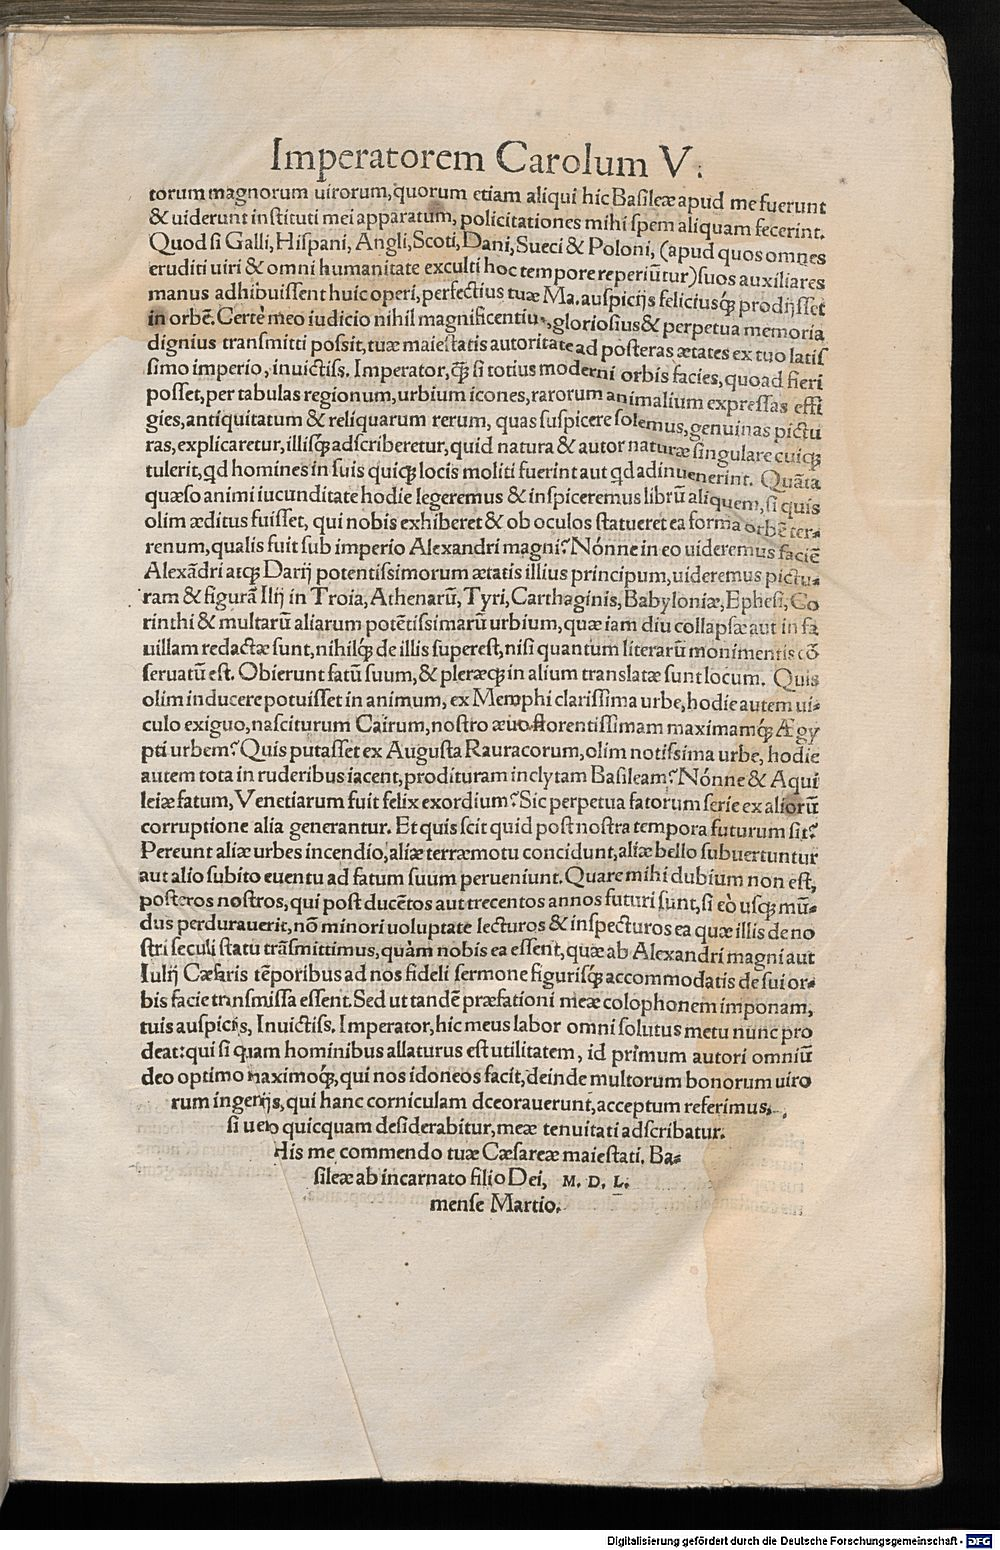 Imperatorem Carolum V.
torum magnorum uirorum, quorum etiam aliqui hic Basileæ apud me fuerunt
& uiderunt instituti mei apparatum, policitationes mihi spem aliquam fecerint.
Quod si Galli, Hispani, Angli, Scoti, Dani, Sueci & Poloni, (apud quos omnes
eruditi uiri & omni humanitate exculti hoc tempore reperiũtur) suos auxiliares
manus adhibuissent huic operi, perfectius tuæ Ma. auspicijs feliciusq́ꝫ prodijsset
in orbẽ. Certè meo iudicio nihil magnificentius, gloriosius & perpetua memoria
dignius transmitti possit, tuæ maiestatis autoritate ad posteras ætates ex tuo latiſ
simo imperio, inuictiss. Imperator, q̃ꝫ si totius moderni orbis facies, quoad fieri
posset, per tabulas regionum, urbium icones, rarorum animalium expressas effi
gies, antiquitatum & reliquarum rerum, quas suspicere solemus, genuinas pictu
ras, explicaretur, illisq́ꝫ adscriberetur, quid natura & autor naturæ singulare cuiqꝫ
tulerit, qd homines in suis quiqꝫ locis moliti fuerint aut qd adinuenerint. Quãta
quæso animi iucunditate hodie legeremus & inspiceremus librũ aliquem, si quis
olim æditus fuisset, qui nobis exhiberet & ob oculos statueret ea forma orbẽ ter-
renum, qualis fuit sub imperio Alexandri magni? Nónne in eo uideremus faciẽ
Alexãdri atqꝫ Darij potentissimorum ætatis illius principum, uideremus pictu-
ram & figurã Ilij in Troia, Athenarũ, Tyri, Carthaginis, Babyloniæ, Ephesi, Co
rinthi & multarũ aliarum potẽtissimarũ urbium, quæ iam diu collapsæ aut in fa
uillam redactæ sunt, nihilq́ꝫ de illis superest, nisi quantum literarũ monimentis cõ
seruatũ est. Obierunt fatũ suum, & pleræqꝫ in alium translatæ sunt locum. Quis
olim inducere potuisset in animum, ex Memphi clarissima urbe, hodie autem ui-
culo exiguo, nasciturum Cairum, nostro æuo florentissimam maximamq́ꝫ Ægy
pti urbem? Quis putasset ex Augusta Rauracorum, olim notissima urbe, hodie
autem tota in ruderibus iacent, prodituram inclytam Basileam? Nónne & Aqui
leiæ fatum, Venetiarum fuit felix exordium? Sic perpetua fatorum serie ex aliorũ
corruptione alia generantur. Et quis scit quid post nostra tempora futurum sit?
Pereunt aliæ urbes incendio, aliæ terræmotu concidunt, aliæ bello subuertuntur
aut alio subito euentu ad fatum suum perueniunt. Quare mihi dubium non est,
posteros nostros, qui post ducẽtos aut trecentos annos futuri sunt, si eò usqꝫ mũ-
dus perdurauerit, nõ minori uoluptate lecturos & inspecturos ea quæ illis de no
stri seculi statu trãsmittimus, quàm nobis ea essent, quæ ab Alexandri magni aut
Iulij Cæsaris tẽporibus ad nos fideli sermone figurisq́ꝫ accommodatis de sui or-
bis facie transmissa essent. Sed ut tandẽ præfationi meæ colophonem imponam,
tuis auspicijs, Inuictiss. Imperator, hic meus labor omni solutus metu nunc pro
deat: qui si quam hominibus allaturus est utilitatem, id primum autori omniũ
deo optimo maximoq́ꝫ, qui nos idoneos facit, deinde multorum bonorum uiro
rum ingenijs, qui hanc corniculam dceorauerunt, acceptum referimus,
si uero quicquam desiderabitur, meæ tenuitati adscribatur.
His me commendo tuæ Cæsareæ maiestati. Ba-
sileæ ab incarnato filio Dei, M. D. L.
mense Martio.
Digitalisierung gefördert durch die Deutsche Forschungsgemeinschaft - DFG